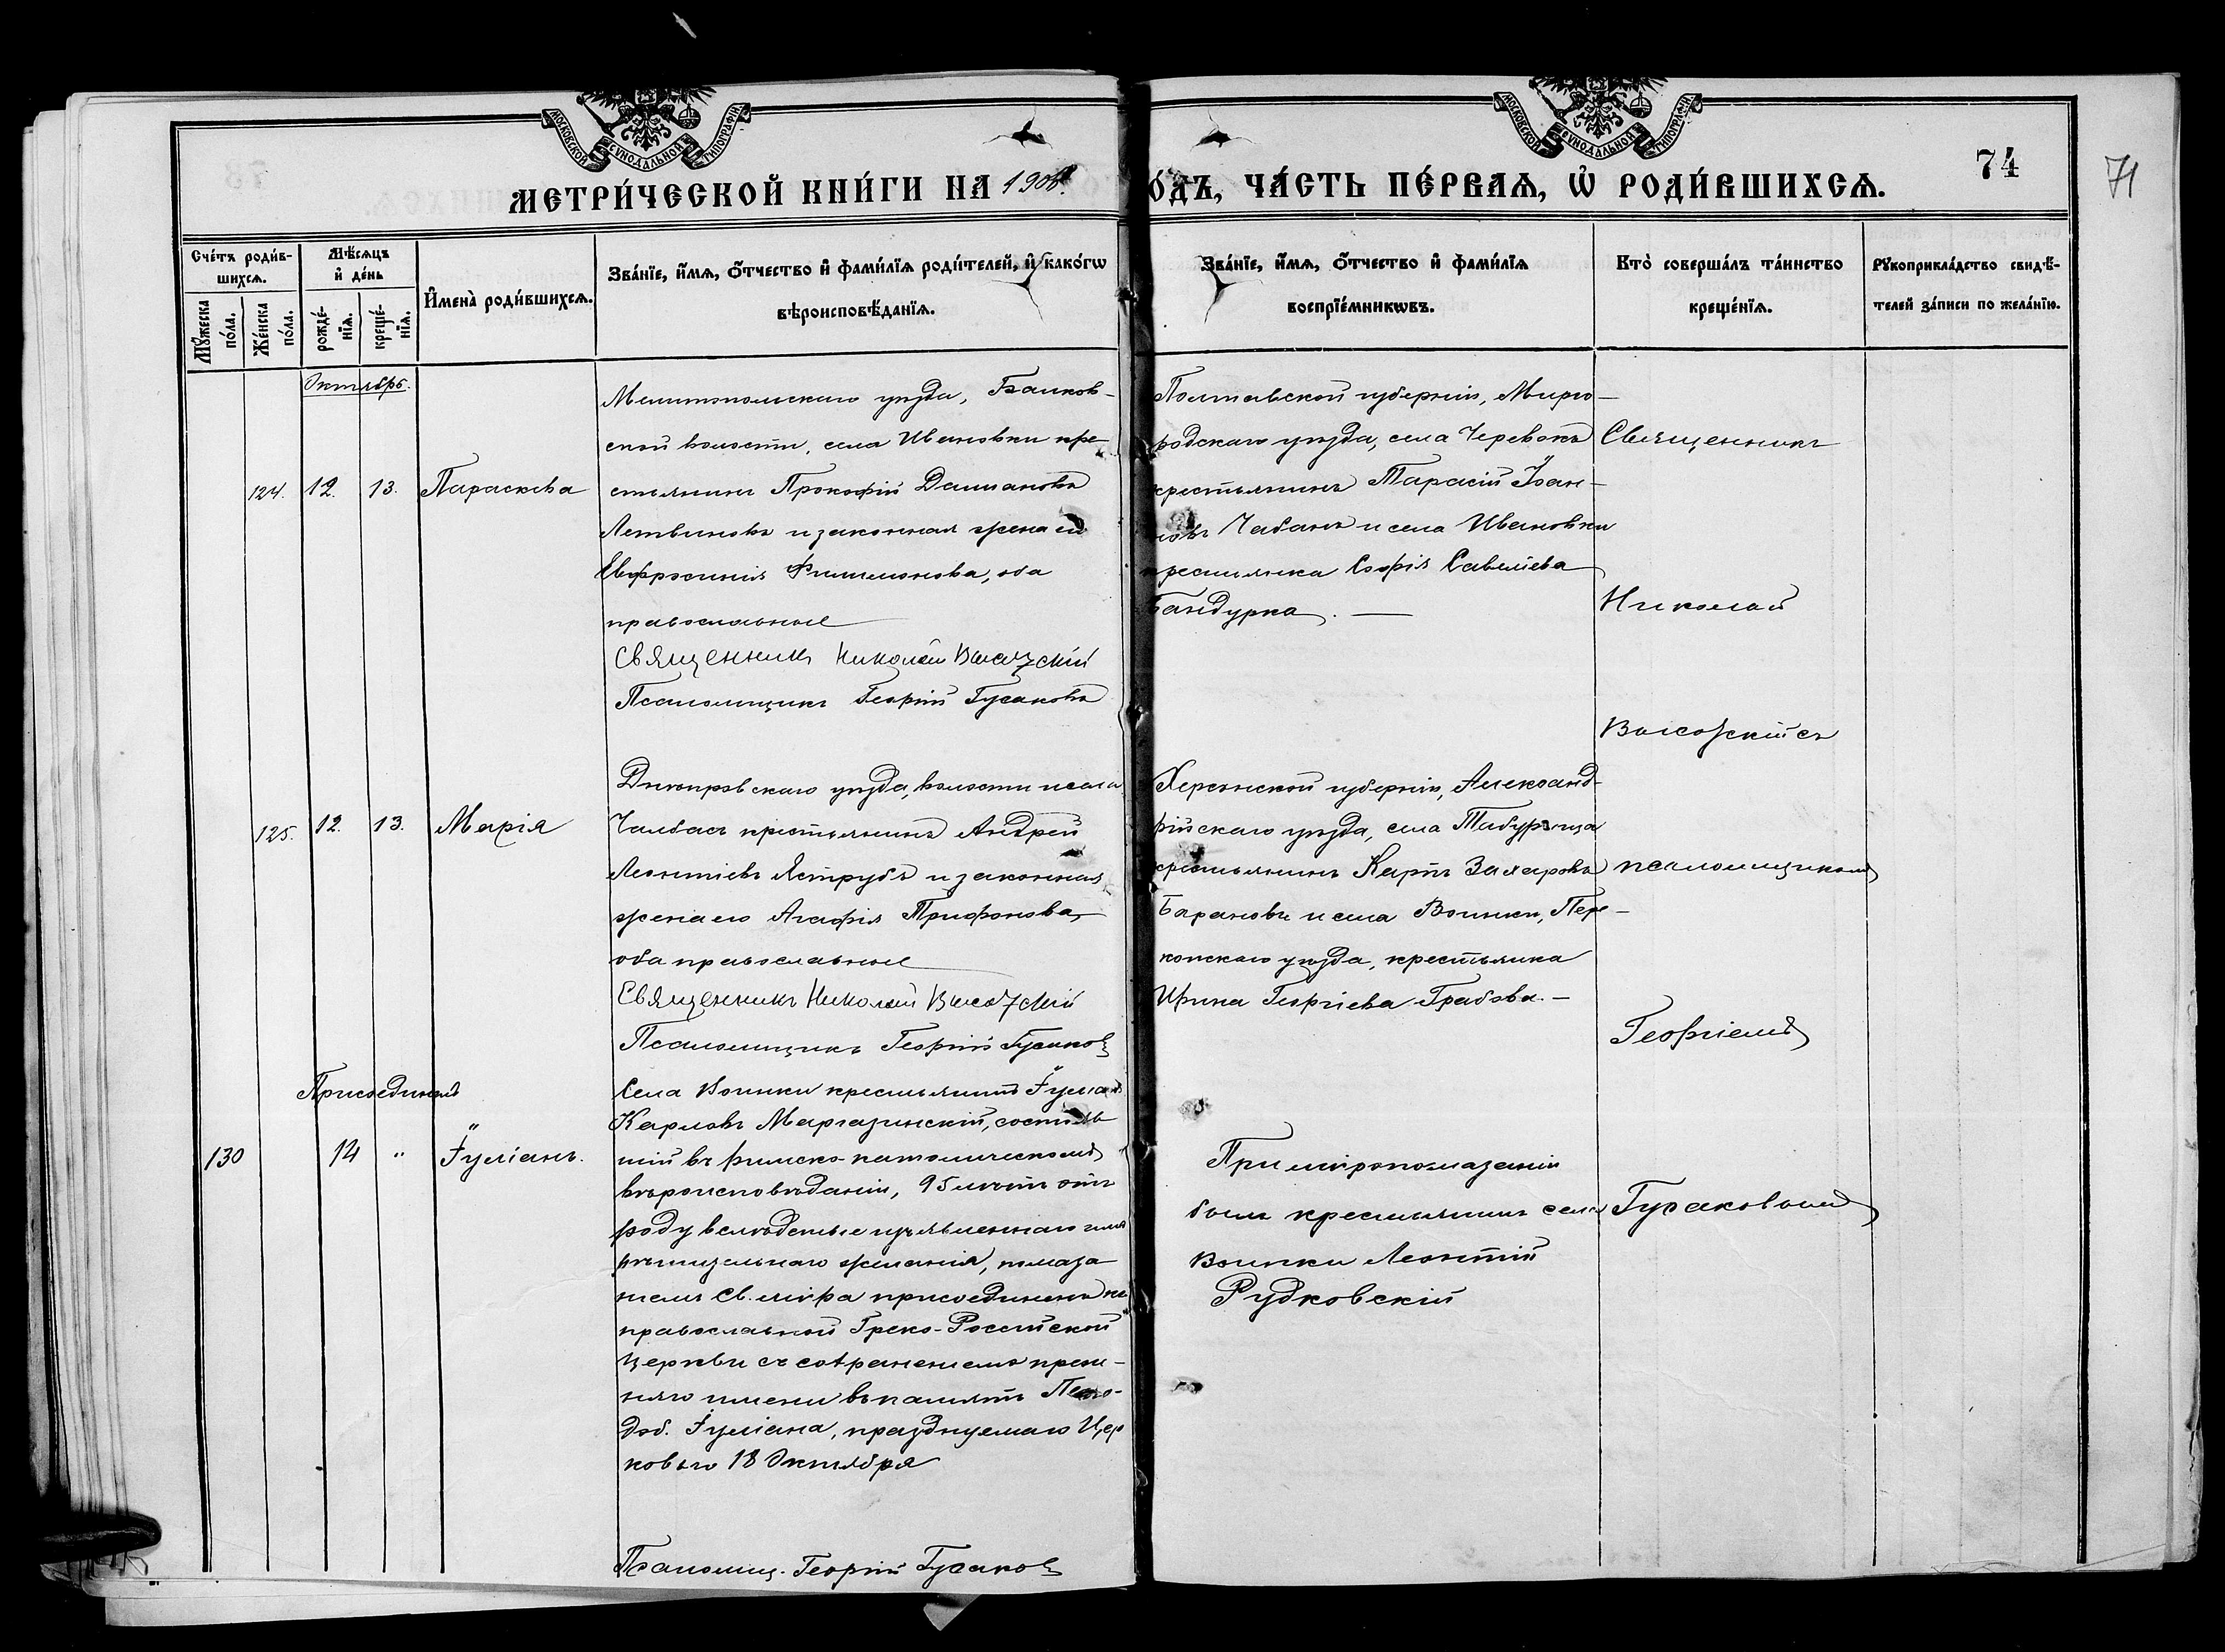 МОСКОВСКОЙ СУНОДАЛЬНОЙ ТИПОГРАФІИ
МОСКОВСКОЙ СУНОДАЛЬНОЙ ТИПОГРАФІИ
МЕТРИ́ЧЕСКОЙ КНИ́ГИ НА 1906
О́ДЪ, ЧА́СТЬ ПЕ́РВАѦ, Ѡ҆ РОДИ́ВШИХСѦ.
74
71
Сче́тъ роди́в-
шихсѧ.
Мѣ́сѧцъ
и҆ де́нь
Мꙋ́жеска
по́ла.
Же́нска
по́ла.
рожде́-
нїѧ.
креще́-
нїѧ.
И҆мена̀ роди́вшихсѧ.
Зва́нїе, и҆́мѧ, ѻ҆́тчество и҆ фами́лїѧ роди́телей, и҆ како́гѡ
вѣроисповѣ́данїѧ.
Зва́нїе, и҆́мѧ, ѻ҆́тчество и҆ фами́лїѧ
воспрїе́мникѡвъ.
Кто̀ соверша́лъ та́инство
креще́нїѧ.
Рꙋкоприкла́дство свидѣ́-
телей за́писи по жела́нїю.
Октябрь.
124. 12. 13. Параскева
Мелитопольскаго уѣзда, Балков-
ской волости, села Ивановки кре-
стьянинъ Прокофій Даміановъ
Летвиновъ и законная жена его
Евфросинія Филимонова, оба
православные
Священникъ Николай Высоцкій
Псаломщикъ Георгій Гусаковъ
Полтавской губерніи, Мирго-
родскаго уѣзда, села Черевокъ
крестьянинъ Тарасій Іоан-
новъ Чабанъ и села Ивановки
крестьянка Софія Савеліева
Бандурка. —
Священникъ
Николай
Высоцкій съ
125. 12. 13. Марія
Днѣпровскаго уѣзда, волости и села
Чалбасъ крестьянинъ Андрей
Леонтіевъ Яструбъ и законная
жена его Агафія Трифонова,
оба православные
Священникъ Николай Высоцкій
Псаломщикъ Георгій Гусаковъ
Херсонской губерніи, Александ-
рійскаго уѣзда, села Табурища
крестьянинъ Карпъ Захаровъ
Барановъ и села Воинки, Пере-
копскаго уѣзда, крестьянка
Ирина Георгіева Грабова. —
псаломщикомъ
Георгіемъ
Присоединенъ
130 14 " Іуліанъ.
Села Воинки крестьянинъ Іуліанъ
Карловъ Маргазинскій, состояв-
шій въ римско-католическомъ
вѣроисповѣданіи, 95 лѣтъ отъ
роду вслѣдствіе изъявленнаго имъ
рѣшительнаго желанія, помаза-
ніемъ Св. мѵра присоединенъ къ
православной Греко-Россійской
Церкви съ сохраненіемъ преж-
няго имени въ память Препо-
доб. Іуліана, празднуемаго Цер
ковью 18 Октября
Псаломщ. Георгій Гусаковъ
При мѵропомазаніи
былъ крестьянинъ села
Воинки Леонтій
Рудковскій
Гусаковымъ